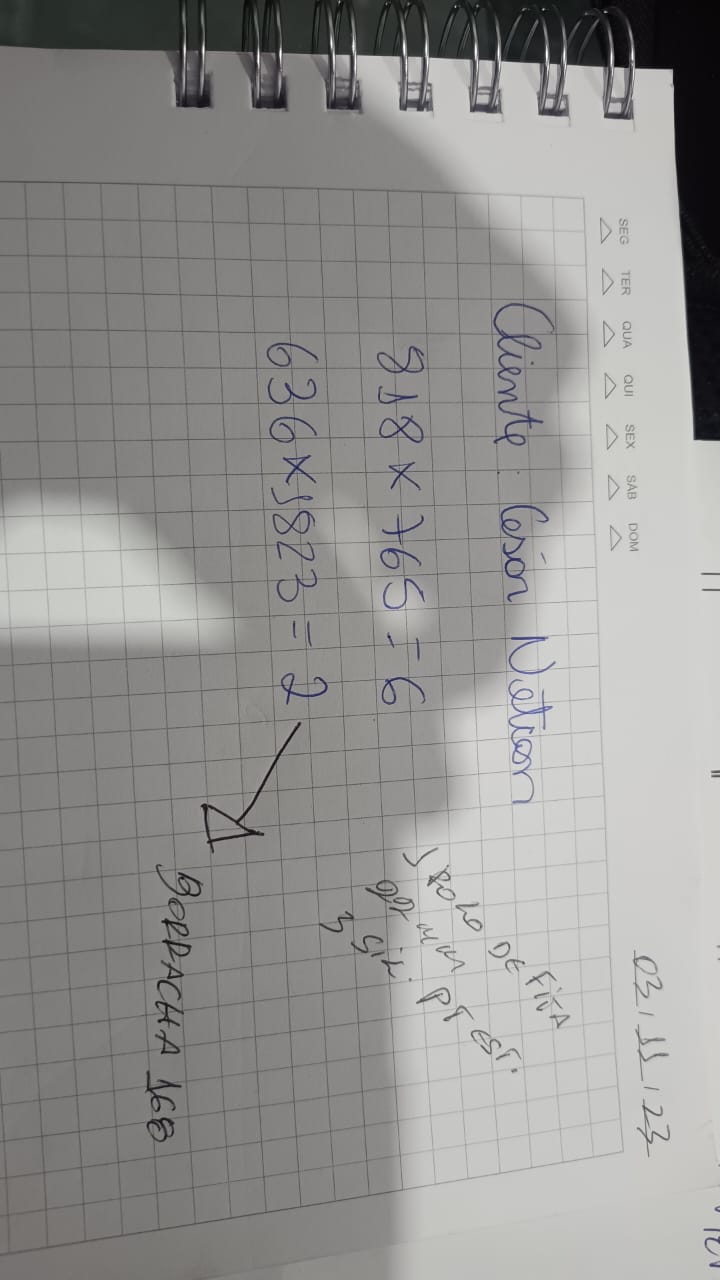 SEG TER QUA QUI SEX SAB DOM
03.11.23
Cliente: Neison
818 x 765 = 6
636 x 1823 = 2
1 ROLO DE FITA
MM PT EST.
3 SIL.
BORRACHA 168